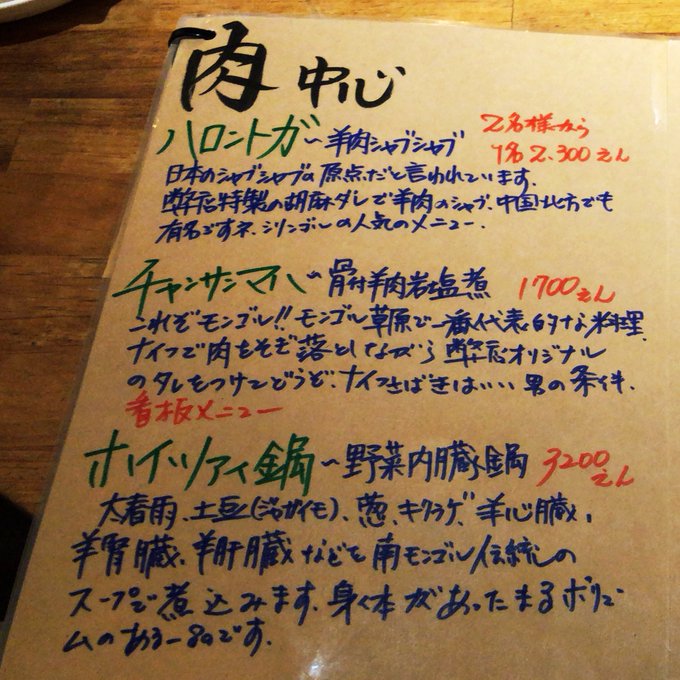 肉 中心
ハロントガ〜羊肉シャブシャブ 2名様から
1名2,300えん
日本のシャブシャブの原点だと言われています。
弊店特製の胡麻ダレで羊肉のシャブ、中国北方でも
有名ですネ、シリンゴルの人気のメニュー。
チャンサンマハ〜骨付羊肉岩塩煮 1700えん
これぞモンゴル!! モンゴル草原で一番代表的な料理。
ナイフで肉をそぎ落としながら弊店オリジナル
のタレもつけてどうぞ、ナイフさばきはいい男の条件。
看板メニュー
ホイツァイ鍋〜野菜内臓鍋 3200えん
大春雨、土豆(ジャガイモ)、葱、キクラゲ、羊心臓、
羊腎臓、羊肝臓などを南モンゴル伝統の
スープで煮込みます。身体があったまるボリュー
ムのある一品です。